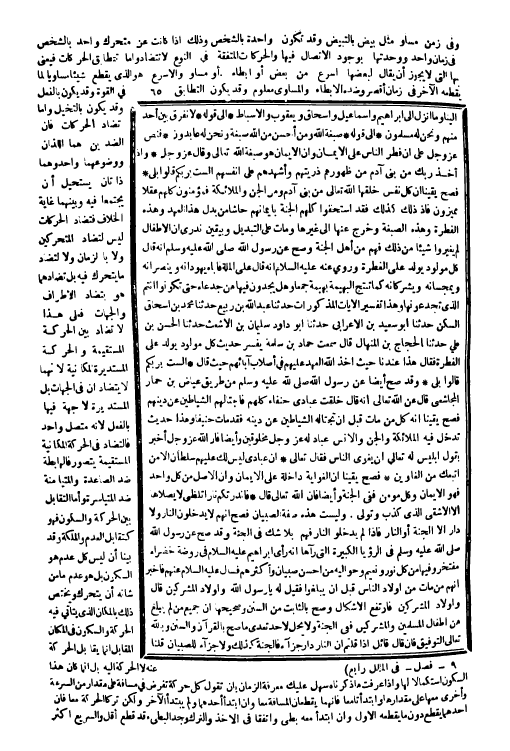 وفى زمن مساو مثل بيض بالتبيض وقد تكون واحدة بالشخص وذلك اذا كانت عن متحرك واحد بالشخص
فى زمان واحد ووحدتها بوجود الاتصال فيها والحركات المتفقة فى النوع لا تتضاد واما تطابق الحركات فيعنى
بها التى لا يجوز أن يقال لبعضها اسرع من بعض أو ابطاء أو مساو والاسرع هو الذى يقطع شيئا مساويا لما
يقطعه الآخر فى زمان أقصر وضده الابطاء والمساوى معلوم وقد يكون التطابق
٦٥
فى القوة وقد يكون بالفعل
وقد يكون بالتخيل واما
تضاد الحركات فان
الضدين هما اللذان
موضوعهما واحد وهما
ذاتان يستحيل أن
يجتمعا فيه وبينهما غاية
الخلاف فتضاد الحركات
ليس لتضاد المتحركين
ولا بالزمان ولا لتضاد
ما يتحرك فيه بل تضادهما
هو بتضاد الاطراف
والجهات فعلى هذا
لا تضاد بين الحركة
المستقيمة والحركة
المستديرة المكانية لانهما
لا يتضادان فى الجهات بل
المستديرة لا جهة فيها
بالفعل لانه متصل واحد
فالتضاد فى الحركة المكانية
المستقيمة يتصور فالهابطة
ضد الصاعدة والمتيامنة
ضد المتياسرة وأما التقابل
بين الحركة والسكون فهو
كتقابل العدم والملكة وقد
بينا أن ليس كل عدم هو
السكون بل هو عدم ما من
شأنه أن يتحرك ويختص
ذلك بالمكان الذى يتأتى فيه
الحركة والسكون فى المكان
المقابل انما يقابل الحركة
عنه لا الحركة اليه بل انما كان هذا
الينا وما انزل الى ابراهيم واسماعيل واسحاق ويعقوب والاسباط * الى قوله * لا نفرق بين أحد
منهم ونحن له مسلمون * الى قوله * صبغة الله ومن أحسن من الله صبغة ونحن له عابدون * فنص
عز وجل على ان فطر الناس على الايمان وان الايمان هو صبغة الله تعالى وقال عز وجل * واذ
أخذ ربك من بنى آدم من ظهورهم ذريتهم وأشهدهم على انفسهم الست بربكم قالوا بلى *
فصح يقينا ان كل نفس خلقها الله تعالى من بنى آدم ومن الجن والملائكة فمؤمنون كلهم عقلا
مميزون فاذ ذلك كذلك فقد استحقوا كلهم الجنة بايمانهم حاشا من بدل هذا العهد وهذه
الفطرة وهذه الصبغة وخرج عنها الى غيرها ومات على التبديل وبيقين ندرى ان الاطفال
لم يغيروا شيئا من ذلك فهم من أهل الجنة وصح عن رسول الله صلى الله عليه وسلم انه قال
كل مولود يولد على الفطرة وروى عنه عليه السلام انه قال على الملة فابواه يهودانه وينصرانه
ويمجسانه ويشركانه كما تنتج البهيمة بهيمة جمعاء هل يجدون فيها من جدعاء حتى تكونوا انتم
الذى تجدعونها وهذا تفسير الآيات المذكورات حدثنا عبد الله بن ربيع حدثنا محمد بن اسحاق
السكن حدثنا ابو سعيد بن الاعرابى حدثنا ابو داود سليمان بن الاشعث حدثنا الحسن بن
على حدثنا الحجاج بن المنهال قال سمعت حماد بن سلمة يفسر حديث كل مولود يولد على
الفطرة فقال هذا عندنا حيث اخذ الله العهد عليهم فى أصلاب آبائهم حيث قال * الست بربكم
قالوا بلى * وقد صح أيضا عن رسول الله صلى الله عليه وسلم من طريق عياض بن حمار
المجاشعى قال عن الله تعالى انه قال خلقت عبادى حنفاء كلهم فاجتالهم الشياطين عن دينهم
فصح يقينا انه كل من مات قبل ان تجتاله الشياطين عن دينه فقد مات حنيفا وهذا حديث
تدخل فيه الملائكة والجن والانس عباد له عز وجل مخلوقين وأيضا فالله عز وجل أخبر
بقول ابليس له تعالى ان يغوى الناس فقال تعالى * ان عبادى ليس لك عليهم سلطان الا من
اتبعك من الغاوين * فصح يقينا ان الغواية داخلة على الايمان وان الاصل من كل واحد
فهو الايمان وكل مؤمن ففى الجنة وأيضا فان الله تعالى قال * فانذرتكم نارا تلظى لا يصلاها
الا الاشقى الذى كذب وتولى . وليست هذه صفة الصبيان فصح انهم لا يدخلون النار ولا
دار الا الجنة أو النار فاذا لم يدخلوا النار فهم بلا شك فى الجنة وقد صح عن رسول الله
صلى الله عليه وسلم فى الرؤيا الكبيرة التى رآها انه رأى ابراهيم عليه السلام فى روضة خضراء
مفتخر وفيها من كل نور ونعيم وحواليه من احسن صبيان وأكثرهم فسأل عليه السلام عنهم فاخبر
انهم من مات من اولاد الناس قبل ان يبلغوا فقيل له يا رسول الله واولاد المشركين قال
واولاد المشركين فارتفع الاشكال وصح بالثابت من السنن وصحيحها ان جميع من لم يبلغ
من اطفال المسلمين والمشركين ففى الجنة ولا يحل لاحد تعدى ما صح بالقرآن والسنن وبالله
تعالى التوفيق فان قال قائل اذا قلتم ان النار دار جزاء فالجنة كذلك ولا جزاء للصبيان قلنا
٩ - فصل - فى الملل رابع )
السكون استكمالا لها واذا عرفت ما ذكرناه سهل عليك معرفة الزمان بان تقول كل حركة تفرض فى مسافة على مقدار من السرعة
وأخرى معها على مقدارها وابتدأتا معا فانهما يقطعان المسافة معا وان ابتدأ أحدهما ولم يبتدأ الآخر ولكن تركا الحركة معا فان
احدهما يقطع دون ما يقطعه الاول وان ابتدأ معه بطىء واتفقا فى الاخذ والترك وجد البطىء قد قطع أقل والسريع اكثر